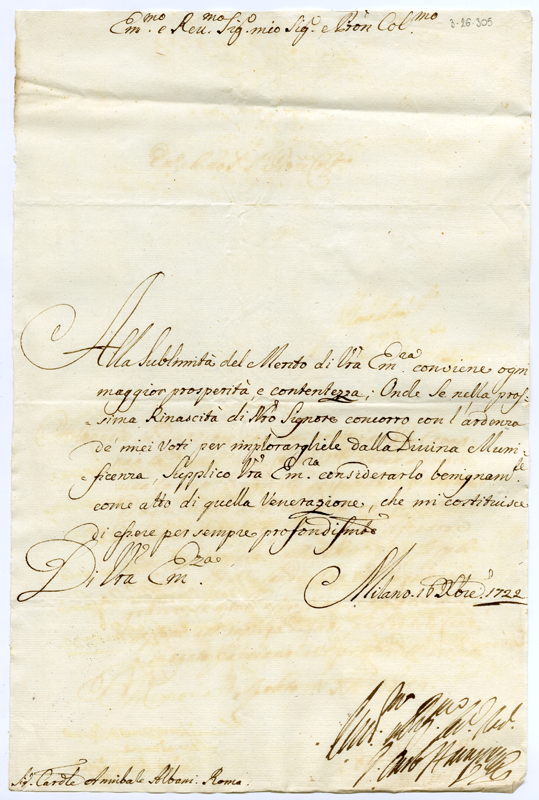 3-26-305
Em.mo e Reu.mo Sig.r mio Sig.r e Pron Col.mo
Alla Sublimità del Merito di Vrã Em.za conviene ogni
maggior prosperità, e contentezza; Onde se nella pros=
=sima Rinascità di Nrõ Signore concorro con l'ardenza
de' miei Voti per implorargliele dalla Divina Muni=
=ficenza, Supplico Vrã Em.za considerarlo benignam.te
come atto di quella Venerazione, che mi costituisce
di essere per sempre profondissimte
Di Vrã Em.za
Milano 16 Xbre 1722
Sig. Cardle Annibale Albani. Roma.